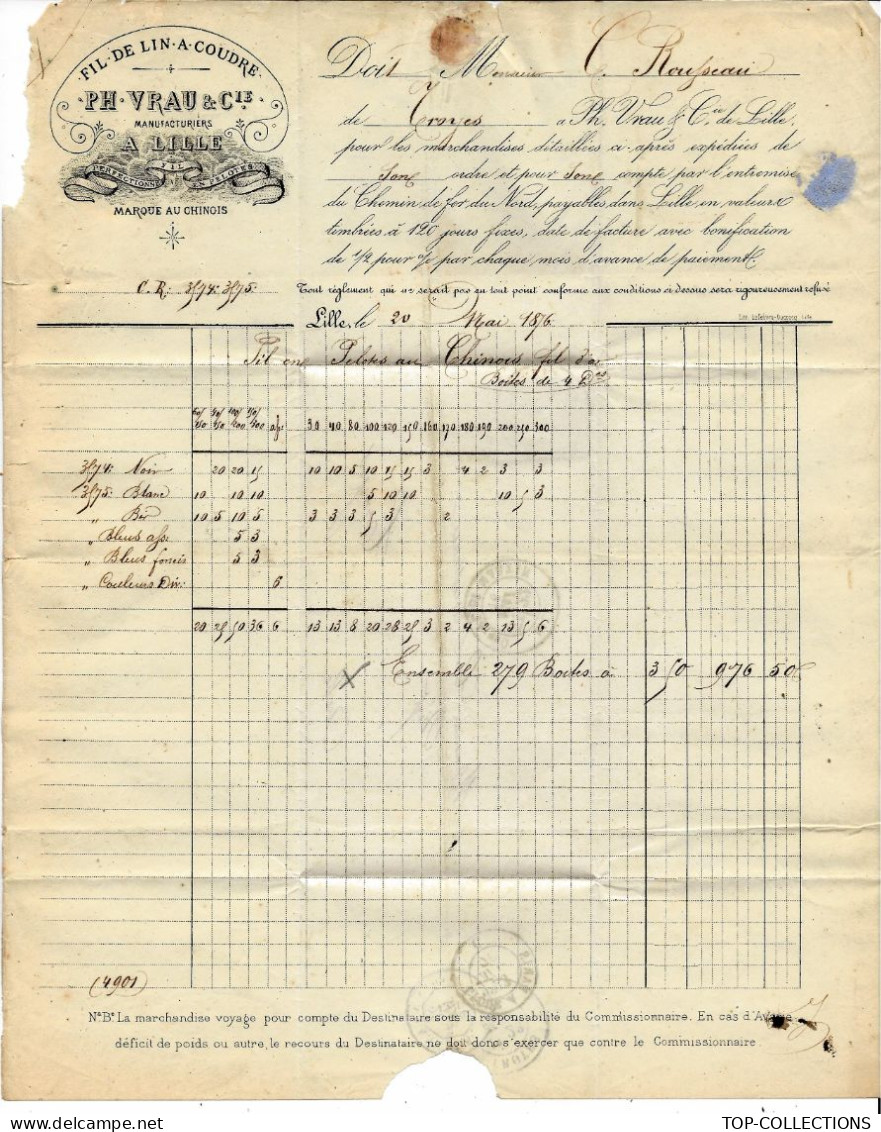 FIL · DE LIN · A · COUDRE
PH · VRAU & CIE
MANUFACTURIERS
A LILLE
FIL
PERFECTIONNÉ EN PELOTES
MARQUE AU CHINOIS
C. R: 3574: 3575:
Doit Monsieur C. Rousseau
de Troyes a Ph. Vrau & Cie de Lille,
pour les marchandises détaillées ci-après expédiées de
Son ordre et pour Son compte par l'entremise
du Chemin de fer du Nord, payables dans Lille, en valeurs
timbrées à 120 jours fixes, date de facture avec bonification
de 1/2 pour % par chaque mois d'avance de paiement.
Tout règlement qui ne serait pas en tout point conforme aux conditions ci dessus sera rigoureusement refusé
Lille, le 20 Mai 1876
Fil en Pelotes au Chinois fil d'or
Boîtes de 4 Dnes
30 40 80 100 120 150 160 170 180 190 200 250 300
3574: Noir 20 20 15 10 10 5 10 15 15 3 4 2 3 3
3575: Blanc 10 10 10 5 10 10 10 5 3
" Bis 10 5 10 5 3 3 3 5 3 2
" Bleus ass. 5 3
" Bleus foncés 5 3
" Couleurs Div: 6
20 25 50 36 6 13 13 8 20 28 25 3 2 4 2 13 5 6
Ensemble 279 Boîtes à 3 50 976 50
(4901)
Na Ba La marchandise voyage pour compte du Destinataire sous la responsabilité du Commissionnaire. En cas d'Avarie
déficit de poids ou autre, le recours du Destinataire ne doit donc s'exercer que contre le Commissionnaire.
TOP-COLLECTIONS